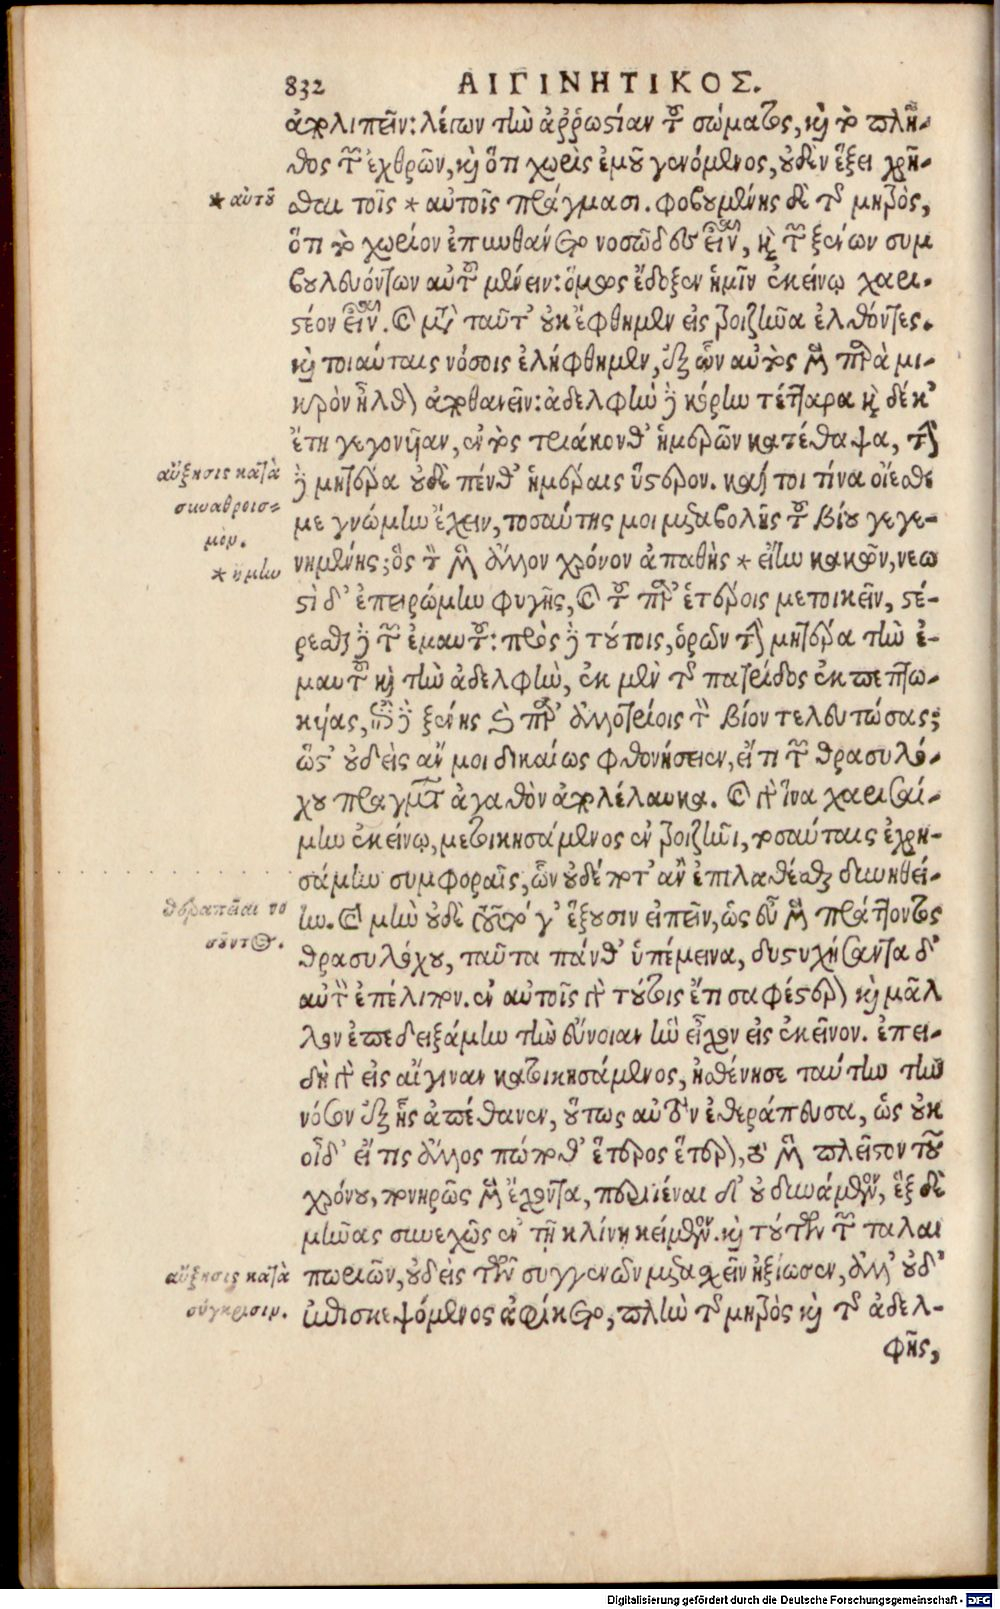 832 ΑΙΓΙΝΗΤΙΚΟΣ.
ἀπολιπεῖν: λέγων τὴν ἀῤῥωστίαν τοῦ σώματος, καὶ τὸ πλῆ-
θος τῶν ἐχθρῶν, καὶ ὅτι χωρὶς ἐμοῦ γενόμενος, οὐδὲν ἕξει χρῆ-
* αὑτοῦ
σθαι τοῖς * αὐτοῖς πράγμασι. φοβουμένης δὲ τῆς μητρὸς,
ὅτι τὸ χωρίον ἐπυνθάνετο νοσῶδες εἶναι, καὶ τῶν ξένων συμ
βουλευόντων αὐτοῦ μένειν: ὅμως ἔδοξεν ἡμῖν ἐκείνῳ χαρι-
στέον εἶναι. καὶ μετὰ ταῦτ' οὐκ ἔφθημεν εἰς τροιζῆνα ἐλθόντες.
καὶ τοιαύταις νόσοις ἐλήφθημεν, ἐξ ὧν αὐτὸς μὲν παρὰ μι-
κρὸν ἦλθον ἀποθανεῖν: ἀδελφὴν δὲ κόρην τετταρακαιδεκ'
ἔτη γεγονυῖαν, ἐντὸς τριάκονθ' ἡμερῶν κατέθαψα, τὴν
αὔξησις κατὰ
δὲ μητέρα οὐδὲ πένθ' ἡμέραις ὕστερον. καί τοι τίνα οἴεσθέ
συναθροισ-
με γνώμην ἔχειν, τοσαύτης μοι μεταβολῆς τοῦ βίου γεγε-
μόν.
* ἤμην
νημένης; ὃς τὸν μὲν ἄλλον χρόνον ἀπαθὴς * εἴην κακῶν, νεω
στὶ δ' ἐπειρώμην φυγῆς, καὶ τοῦ παρ' ἑτέροις μετοικεῖν, στέ-
ρεσθαι δὲ τῶν ἐμαυτοῦ: πρὸς δὲ τούτοις, ὁρῶν τὴν μητέρα τὴν ἐ-
μαυτοῦ καὶ τὴν ἀδελφὴν, ἐκ μὲν τῆς πατρίδος ἐκπεπτω-
κυίας, ἐπὶ δὲ ξένης καὶ παρ' ἀλλοτρίοις τὸν βίον τελευτώσας;
ὥστ' οὐδεὶς ἄν μοι δικαίως φθονήσειεν, εἴ τι τῶν θρασυλό-
χου πραγμάτων ἀγαθὸν ἀπολέλαυκα. καὶ γὰρ ἵνα χαρισαί-
μην ἐκείνῳ, μετοικησάμενος ἐν τροιζῆνι, τοσαύταις ἐχρη-
σάμην συμφοραῖς, ὧν οὐδέποτ' ἂν ἐπιλαθέσθαι δυνηθεί-
θεραπεῖαι νο
ην. καὶ μὴν οὐδὲ τοῦτό γ' ἕξουσιν εἰπεῖν, ὡς εὖ μὲν πράττοντος
σοῦντος.
θρασυλόχου, ταῦτα πάνθ' ὑπέμεινα, δυστυχήσαντα δ'
αὐτὸν ἐπέλιπον. ἐν αὐτοῖς γὰρ τούτοις ἔτι σαφέστερον καὶ μᾶλ
λον ἐπεδειξάμην τὴν εὔνοιαν ἣν εἶχον εἰς ἐκεῖνον. ἐπει-
δὴ γὰρ εἰς αἴγιναν κατοικησάμενος, ἠσθένησε ταύτην τὴν
νόσον ἐξ ἧς ἀπέθανεν, οὕτως αὐτὸν ἐθεράπευσα, ὡς οὐκ
οἶδ' εἴ τις ἄλλος πώποθ' ἕτερος ἕτερον, τὸν μὲν πλεῖστον τοῦ
χρόνου, πονηρῶς μὲν ἔχοντα, περιϊέναι δ' οὐ δυνάμενον, ἓξ δὲ
μῆνας συνεχῶς ἐν τῇ κλίνῃ κείμενον. καὶ τούτων τῶν ταλαι
αὔξησις κατὰ
πωριῶν, οὐδεὶς τῶν συγγενῶν μετασχεῖν ἠξίωσεν, ἀλλ' οὐδ'
σύγκρισιν.
ἐπισκεψόμενος ἀφίκετο, πλὴν τῆς μητρὸς καὶ τῆς ἀδελ-
φῆς,
Digitalisierung gefördert durch die Deutsche Forschungsgemeinschaft - DFG